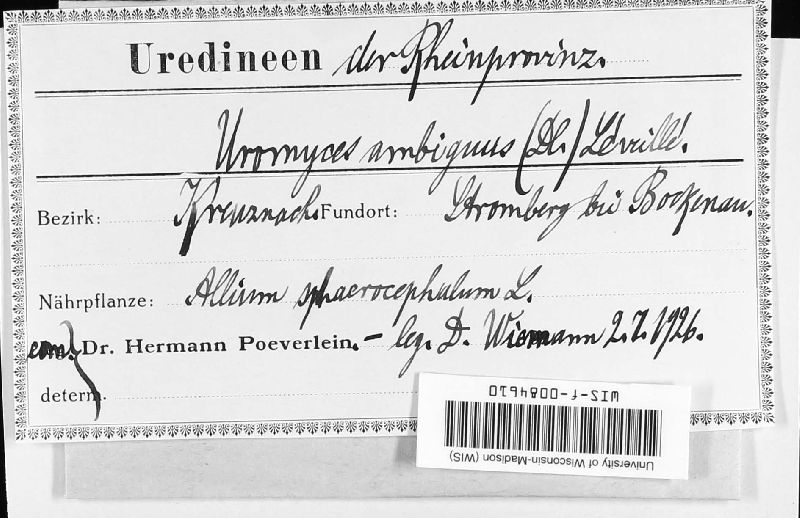 Uredineen der Rheinprovinz.
Uromyces ambiguus (DC.) Léveillé.
Bezirk: Kreuznach. Fundort: Stromberg bei Bockenau.
Nährpflanze: Allium sphaerocephalum L.
com. Dr. Hermann Poeverlein. – leg. D. Wiemann 2.7.1926.
determ.
WIS-f-0084610
University of Wisconsin-Madison (WIS)